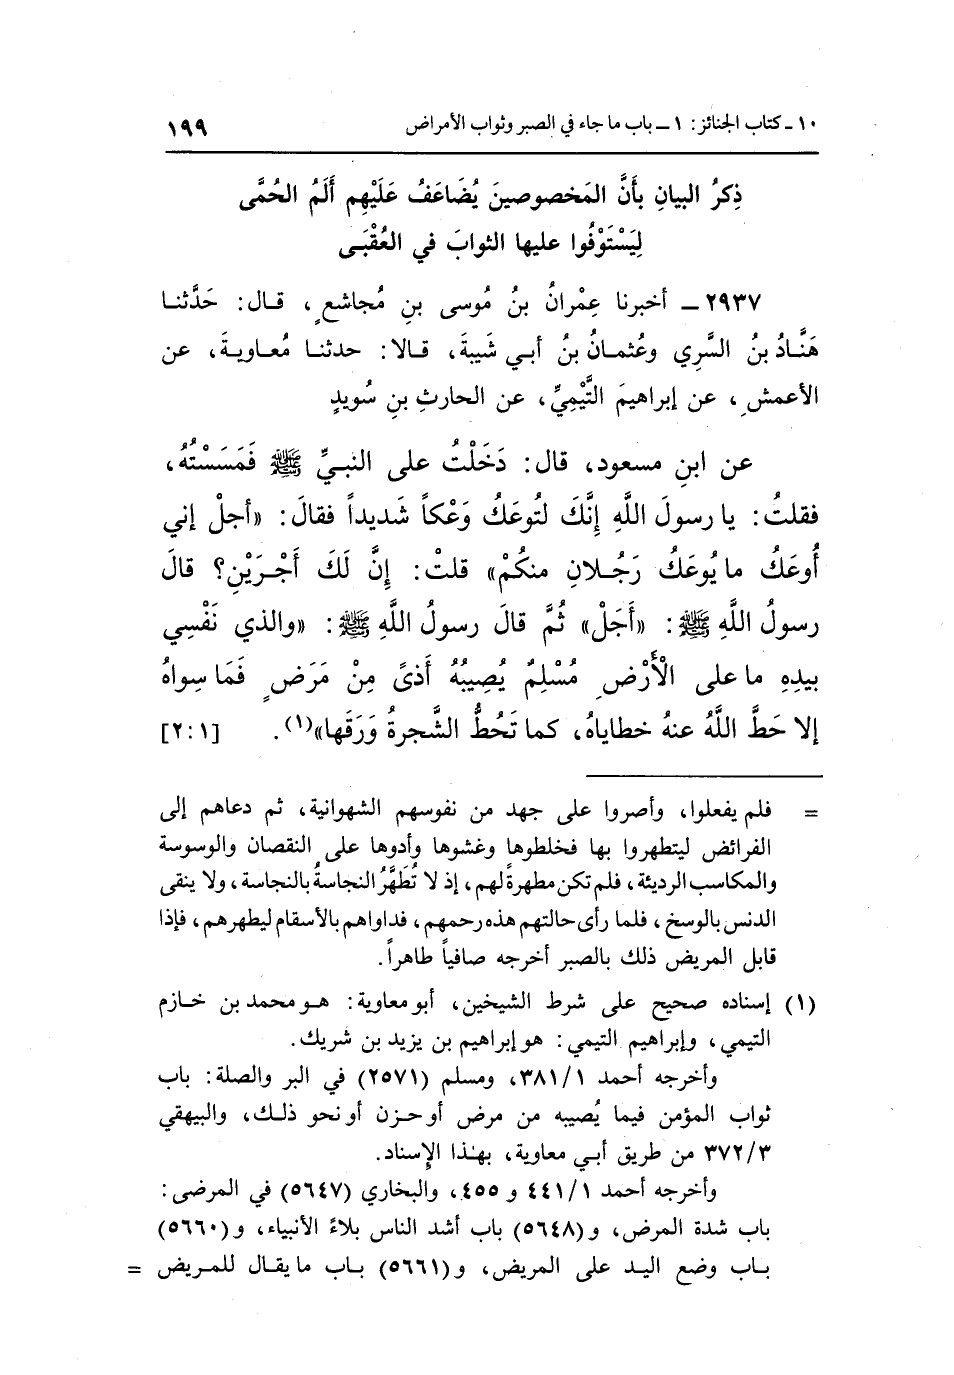 ١٠ ـ كتاب الجنائز: ١ ـ باب ما جاء في الصبر وثواب الأمراض ١٩٩
ذِكرُ البيانِ بأَنَّ المَخصوصينَ يُضَاعَفُ عَلَيْهِم أَلَمُ الحُمَّى
لِيَسْتَوْفُوا عليها الثوابَ في العُقْبَى
٢٩٣٧ ـ أخبرنا عِمْرانُ بنُ مُوسى بنِ مُجاشعٍ، قال: حَدَّثنا
هَنَّادُ بنُ السَّرِي وعُثمانُ بنُ أبي شَيبةَ، قالا: حدثنا مُعاويةَ، عن
الأعمشِ، عن إبراهيمَ التَّيْمِيِّ، عن الحارثِ بنِ سُويدٍ
عن ابنِ مسعود، قال: دَخَلْتُ على النبيِّ ﷺ فَمَسَسْتُهُ،
فقلتُ: يا رسولَ اللَّهِ إنَّكَ لَتُوعَكُ وَعْكاً شَديداً فقالَ: «أجلْ إني
أُوعَكُ ما يُوعَكُ رَجُلانِ منكُمْ» قلتْ: إنَّ لَكَ أَجْرَيْنِ؟ قالَ
رسولُ اللَّهِ ﷺ: «أَجَلْ» ثُمَّ قالَ رسولُ اللَّهِ ﷺ: «والذي نَفْسِي
بيدِهِ ما على الْأَرْضِ مُسْلِمٌ يُصِيبُهُ أَذىً مِنْ مَرَضٍ فَمَا سِواهُ
إلا حَطَّ اللَّهُ عنهُ خطاياهُ، كما تَحُطُّ الشَّجرةُ وَرَقَها»(١). [٢:١]
= فلم يفعلوا، وأصروا على جهد من نفوسهم الشهوانية، ثم دعاهم إلى
الفرائض ليتطهروا بها فخلطوها وغشوها وأدوها على النقصان والوسوسة
والمكاسب الرديئة، فلم تكن مطهرةً لهم، إذ لا تُطَهَّرُ النجاسةُ بالنجاسة، ولا ينقى
الدنس بالوسخ، فلما رأى حالتهم هذه رحمهم، فداواهم بالأسقام ليطهرهم، فإذا
قابل المريض ذلك بالصبر أخرجه صافياً طاهراً.
(١) إسناده صحيح على شرط الشيخين، أبو معاوية: هو محمد بن خازم
التيمي، وإبراهيم التيمي: هو إبراهيم بن يزيد بن شريك.
وأخرجه أحمد ٣٨١/١، ومسلم (٢٥٧١) في البر والصلة: باب
ثواب المؤمن فيما يُصيبه من مرض أو حزن أو نحو ذلك، والبيهقي
٣٧٢/٣ من طريق أبي معاوية، بهٰذا الإِسناد.
وأخرجه أحمد ٤٤١/١ و ٤٥٥، والبخاري (٥٦٤٧) في المرضى:
باب شدة المرض، و(٥٦٤٨) باب أشد الناس بلاءً الأنبياء، و(٥٦٦٠)
باب وضع اليد على المريض، و(٥٦٦١) باب ما يقال للمريض =